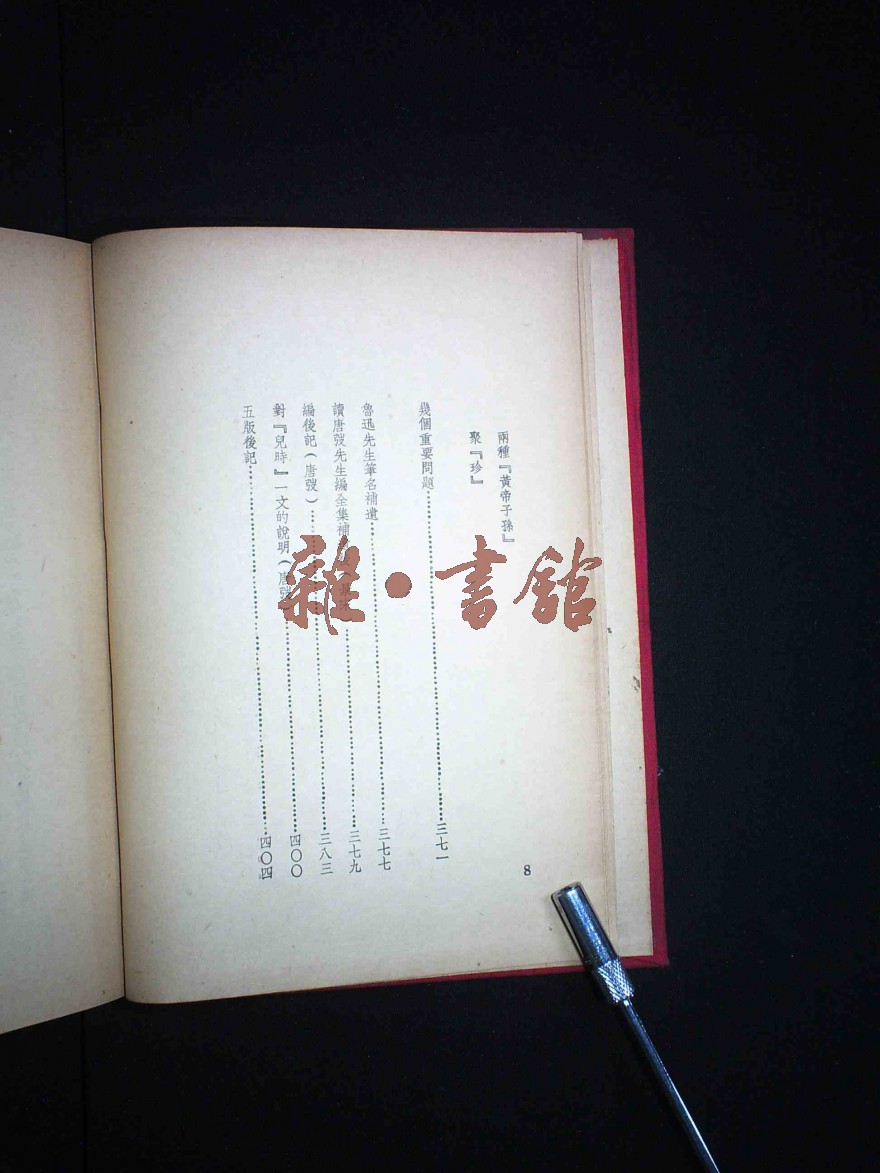 兩種『黃帝子孫』
聚『珍』
幾個重要問題……三七一
魯迅先生筆名補遺……三七七
讀唐弢先生編全集補……三七九
編後記(唐弢)……三八三
對『兒時』一文的說明(唐弢……四〇〇
五版後記……四〇四
8
雜·書館